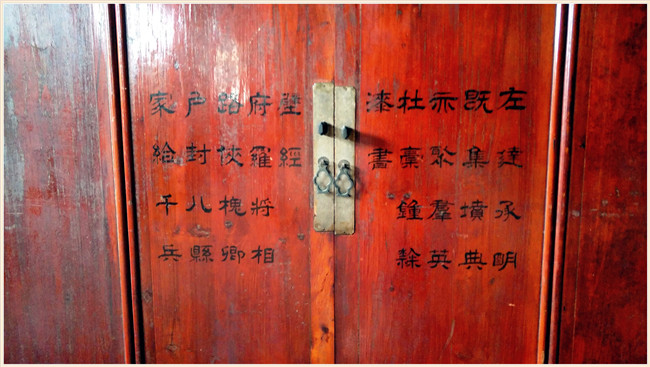 左達承明
既集墳典
亦聚羣英
杜稾鐘隸
漆書
壁經
府羅將相
路俠槐卿
户封八縣
家給千兵